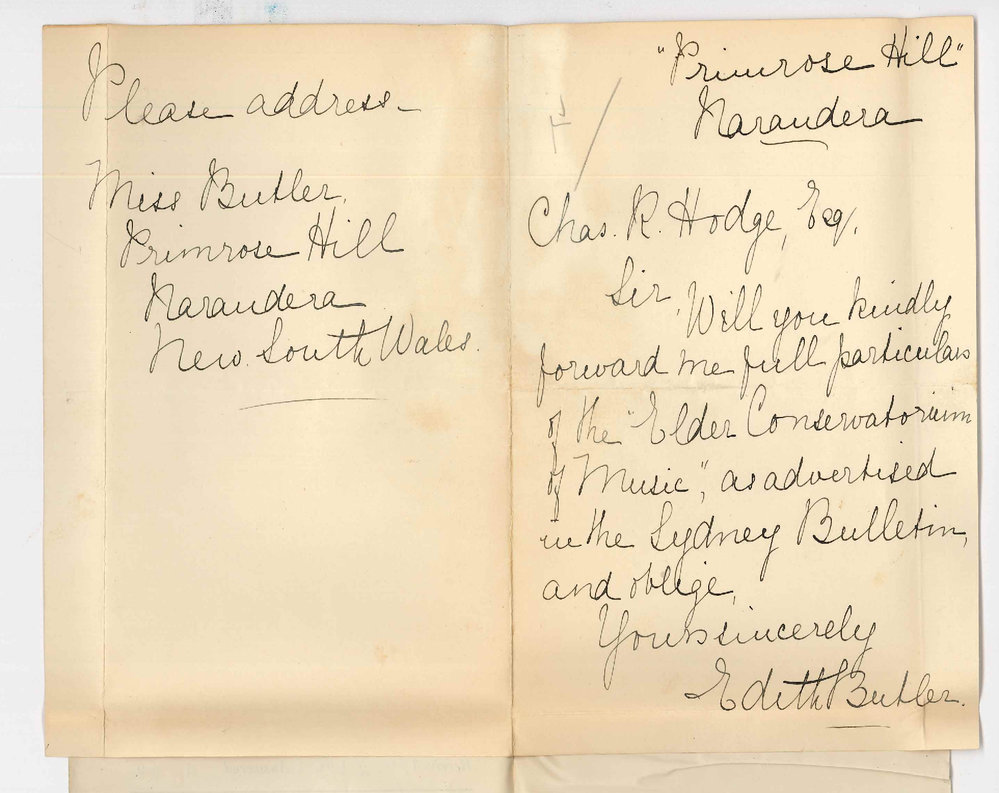 Please address—
Miss Butler,
Primrose Hill
Narandera
New South Wales.
"Primrose Hill"
Narandera
Chas. R. Hodge, Esq,
Sir,
Will you kindly
forward me full particulars
of the "Elder Conservatorium
of Music", as advertised
in the Sydney Bulletin,
and oblige,
Yours sincerely
Edith Butler.